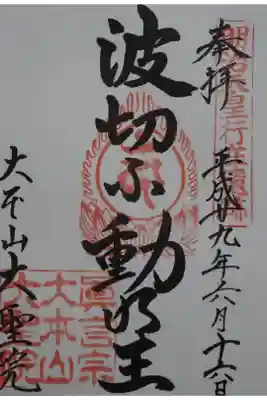 奉拝 平成廿九年六月十六日
波切不動明王
大本山 大聖院
眞言宗
大本山
大聖院